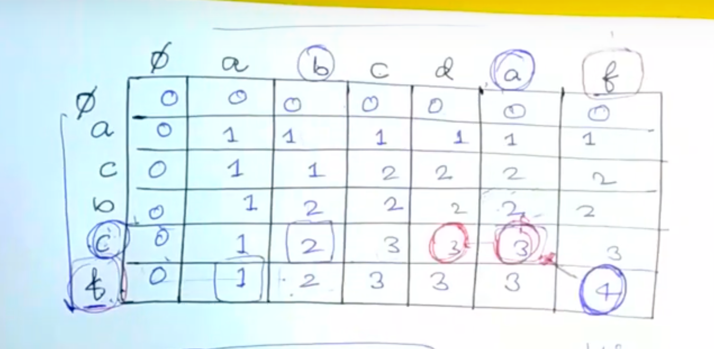 ∅ a b c d a f
∅ 0 0 0 0 0 0 0
a 0 1 1 1 1 1 1
c 0 1 1 2 2 2 2
b 0 1 2 2 2 2 2
c 0 1 2 3 3 3 3
f 0 1 2 3 3 3 4